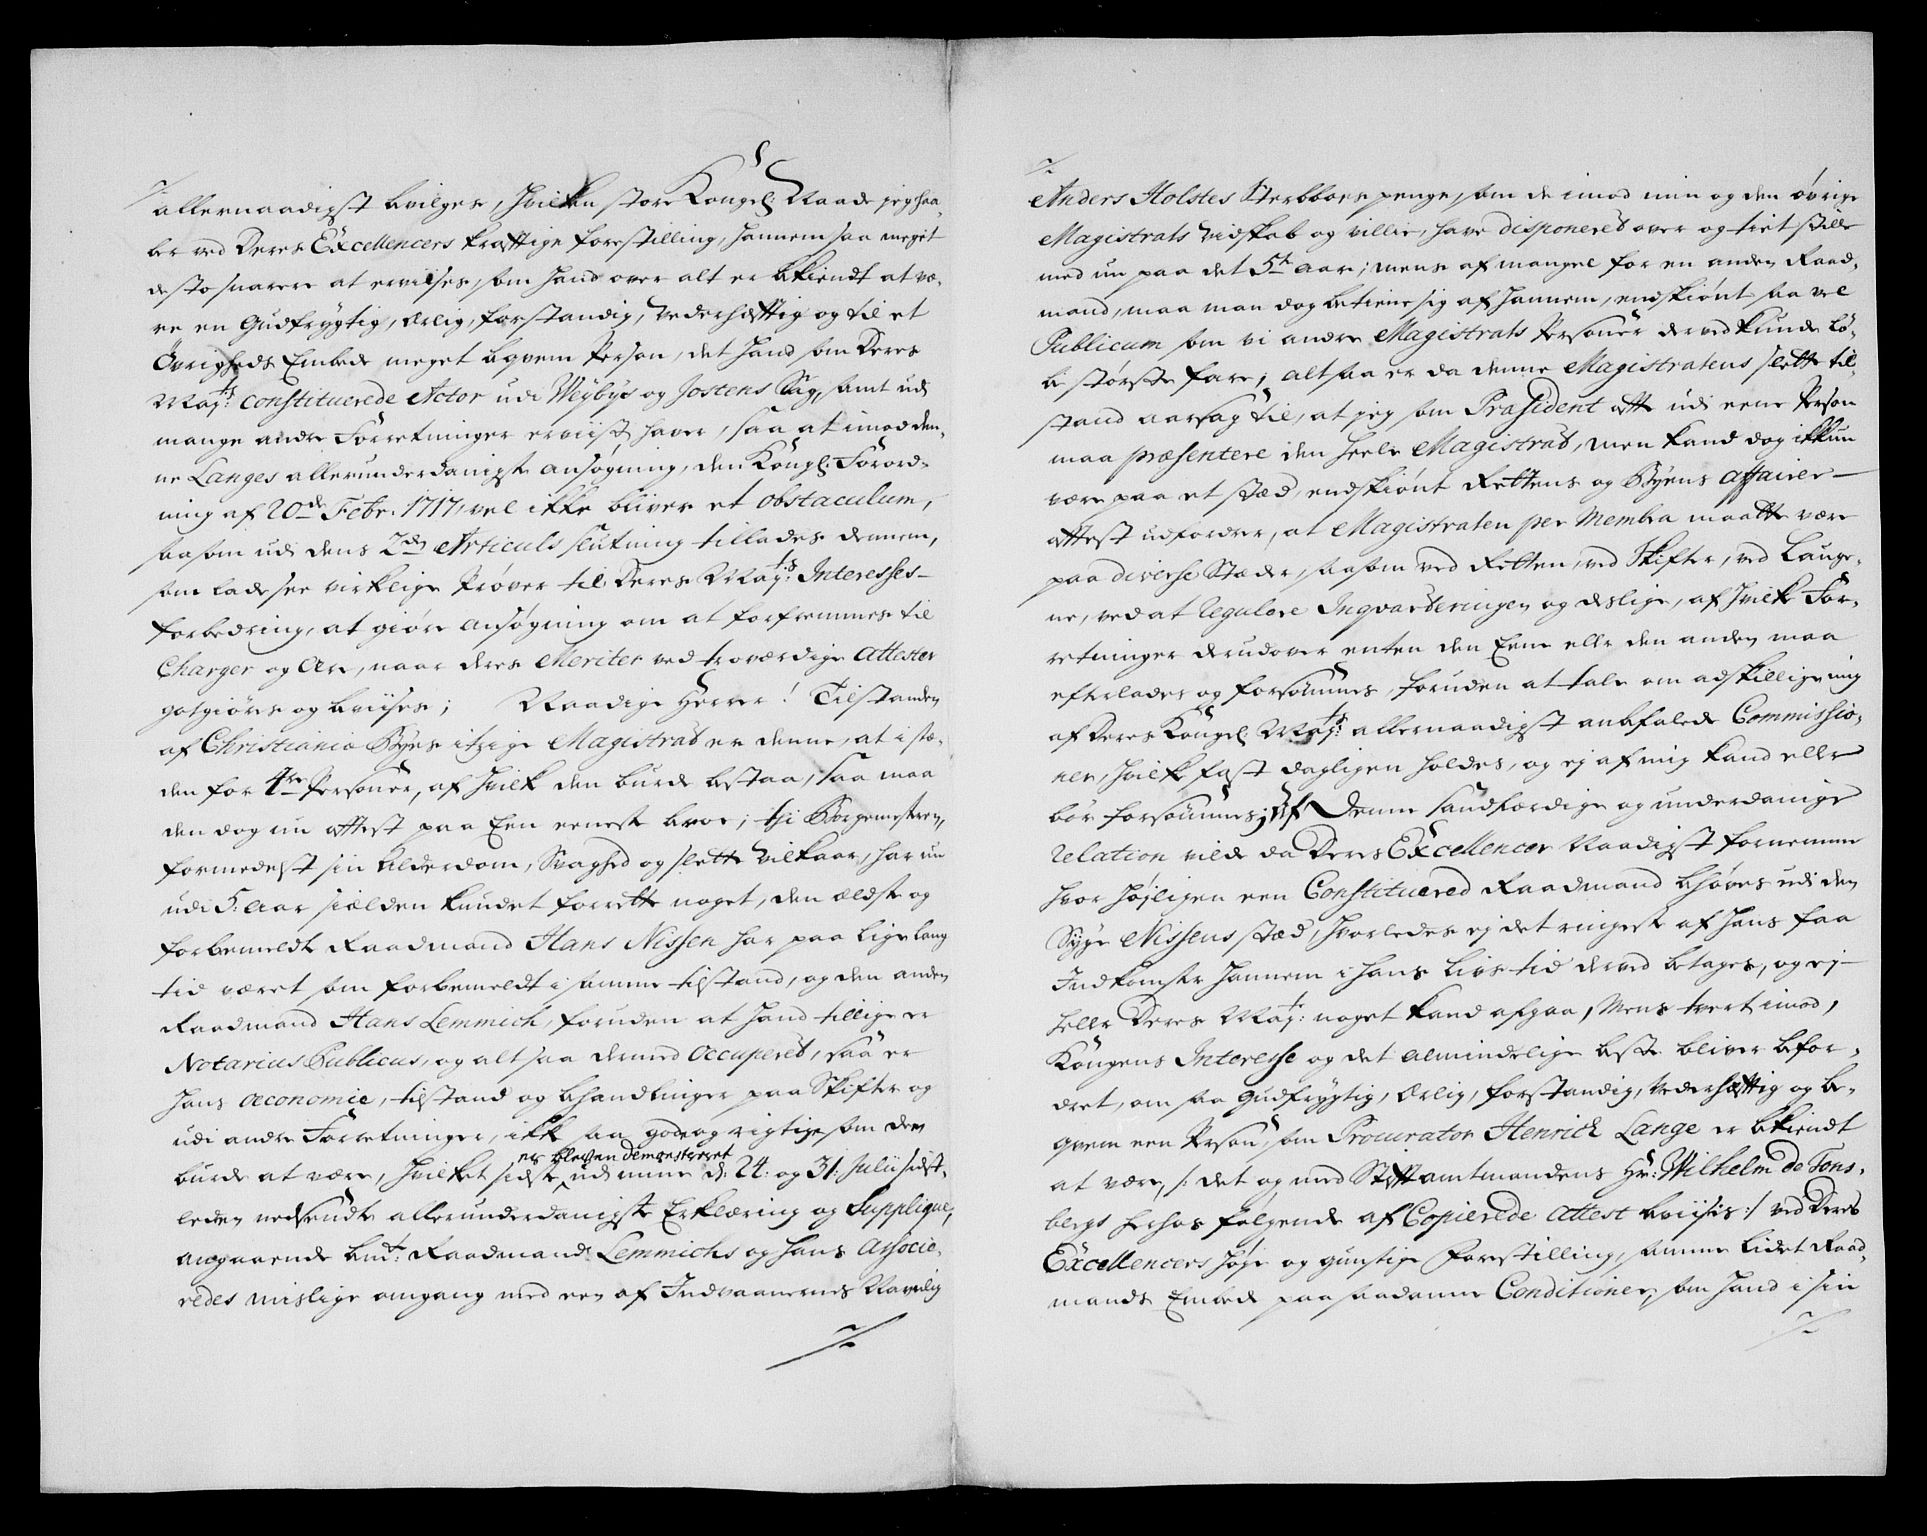 allernaadigst bevilges, hvilken store Kongel: Naade jeg haa-
ber ved Deres Excellencers kraftige forestilling, hannem saa meget
desto snarere at ervises, som hand over alt er bekiendt at væ-
re en Gudfrygtig, ærlig, forstandig, Vederhæftig og til et
Övrigheds Embede meget beqvem Person, det hand som Deres
Maj:ts constituerede Actor udi Weybyes og Jostens Sag, samt udi
mange andre Forretninger erviist haver, saa at imod den-
ne Langes allerunderdanigste ansøgning, den Kongl: Forord-
ning af 20de Febr. 1717, vel ikke bliver et obstaculum,
saasom udi dens 2den Articuls slutning tillades dennem,
som lade see virklige Prøver til Deres Maj:ts Interesses
forbedring, at giøre ansøgning om at forfremmes til
Charger og Ære, naar deres Meriter ved troværdige Attester
gotgiöres og beviises; Naadige Herrer! Tilstanden
af Christiania Byes itzige Magistrat er denne, at i stæ-
den for 4re Persohner, af hvilke den burde bestaa, saa maa
den dog nu oftest paa Een eeneste beroe; thi Borgemesteren,
formedelst sin Alderdom, Svaghed og slette Vilkaar, har nu
udi 5: Aar siælden kundet forrette noget, den ældste og
forbemeldte Raadmand Hans Nissen har paa lige lang
tid været som forbemeldt i samme tilstand, og den anden
Raadmand Hans Lemmich, foruden at hand tillige er
Notarius Publicus, og altsaa dermed occuperet, saa er
hans oeconomie, tilstand og behandlinger paa Skifter og
udi andre Forretninger, ikke saa gode og rigtige som den
er bleven demonstreret
burde at være, hvilket sidste udi mine d: 24: og 31: Julii sidst-
leden nedsendte allerunderdanigste Erklæring og Supplique,
angaaende bem:te Raadmand Lemmichs og hans Associe-
redes mislige omgang med een af Indvaanernes Navnlig
Anders Holstes Sterbboes penge, som de imod min og den øvrige
Magistrats Vidskab og villie, have disponeret over og tiet stille
med nu paa det 5te Aar; mens af mangel for en anden Raad-
mand, maa man dog betiene sig af hannem, endskiönt saa vel
Publicum som vi andre Magistrats Persohner derved kunde lø-
be største fare; altsaa er da denne Magistratens slette til-
stand aarsag til, at jeg som Præsident ofte udi eene Person
maa præsentere den heele Magistrat, men kand dog ikkun
være paa et stæd, endskiönt Rettens og Byens affairer
oftest udfordrer, at Magistraten per Membra maatte være
paa diverse Stæder, saasom ved Retten, ved Skifter, ved Lauge-
ne, ved at Regulere Inqvarteringen og deslige, af hvilke For-
retninger derudover enten den Eene eller den anden maa
efterlades og forsömmes, foruden at tale om adskillige mig
af Deres Kongel: Maj:ts allernaadigst anbefalede Commissio-
ner, hvilke fast dagligen holdes, og ej af mig kand eller
bör forsömmes; Af Denne sandfærdige og underdanige
relation vilde da Deres Excellencer Naadigst fornemme
hvor højligen een Constituered Raadmand behöves udi den
Syge Nissens stæd, hvorledes ej det ringeste af hans faa
Indkomster hannem i hans livs tid derved betages, og ej
heller Deres Maj:t noget kand afgaa, Mens tvert imod,
Kongens Interesse og det almindelige beste bliver befor-
dret, om saa Gudfrygtig, ærlig, forstandig, Vederhæftig og be-
qvem een Person, som Procurator Henrich Lange er bekiendt
at være, /: det og med Stiftamtmandens Hr: Wilhelm de Tons-
bergs herhos følgende af Copierede Attest beviises :/ ved Deres
Excellencers høje og gunstige forestilling, samme lidet Raad-
mands Embede paa saadanne Conditioner, som hand i sin